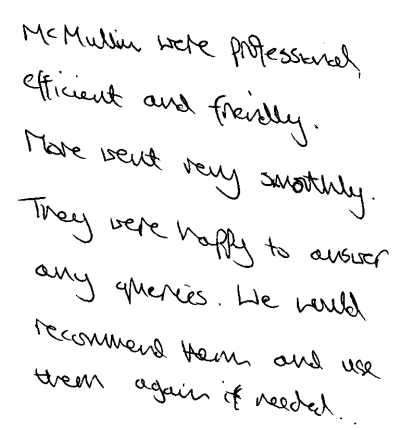 McMullin were professional,
efficient and friendly.
Move went very smoothly.
They were happy to answer
any queries. We would
recommend them and use
them again if needed..